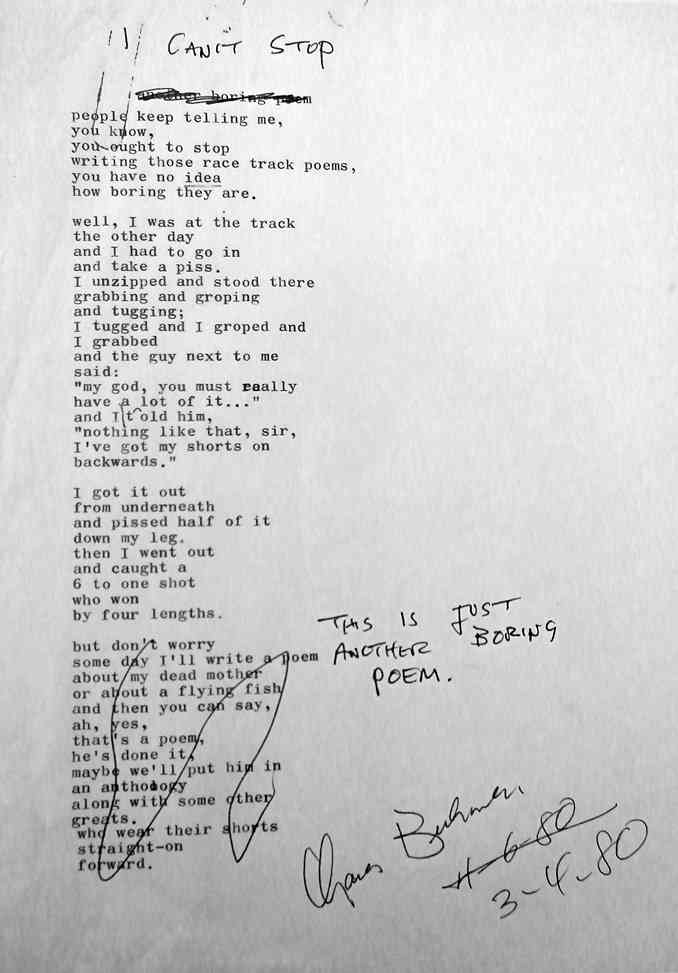 11 CAN'T STOP
another boring poem
people keep telling me,
you know,
you ought to stop
writing those race track poems,
you have no idea
how boring they are.
well, I was at the track
the other day
and I had to go in
and take a piss.
I unzipped and stood there
grabbing and groping
and tugging;
I tugged and I groped and
I grabbed
and the guy next to me
said:
"my god, you must really
have a lot of it..."
and I told him,
"nothing like that, sir,
I've got my shorts on
backwards."
I got it out
from underneath
and pissed half of it
down my leg.
then I went out
and caught a
6 to one shot
who won
by four lengths.
THIS IS JUST
ANOTHER BORING
POEM.
but don't worry
some day I'll write a poem
about my dead mother
or about a flying fish
and then you can say,
ah, yes,
that's a poem,
he's done it,
maybe we'll put him in
an anthology
along with some other
greats.
who wear their shorts
straight-on
forward.
Charles Bukowski
11-6-80
3-4-80